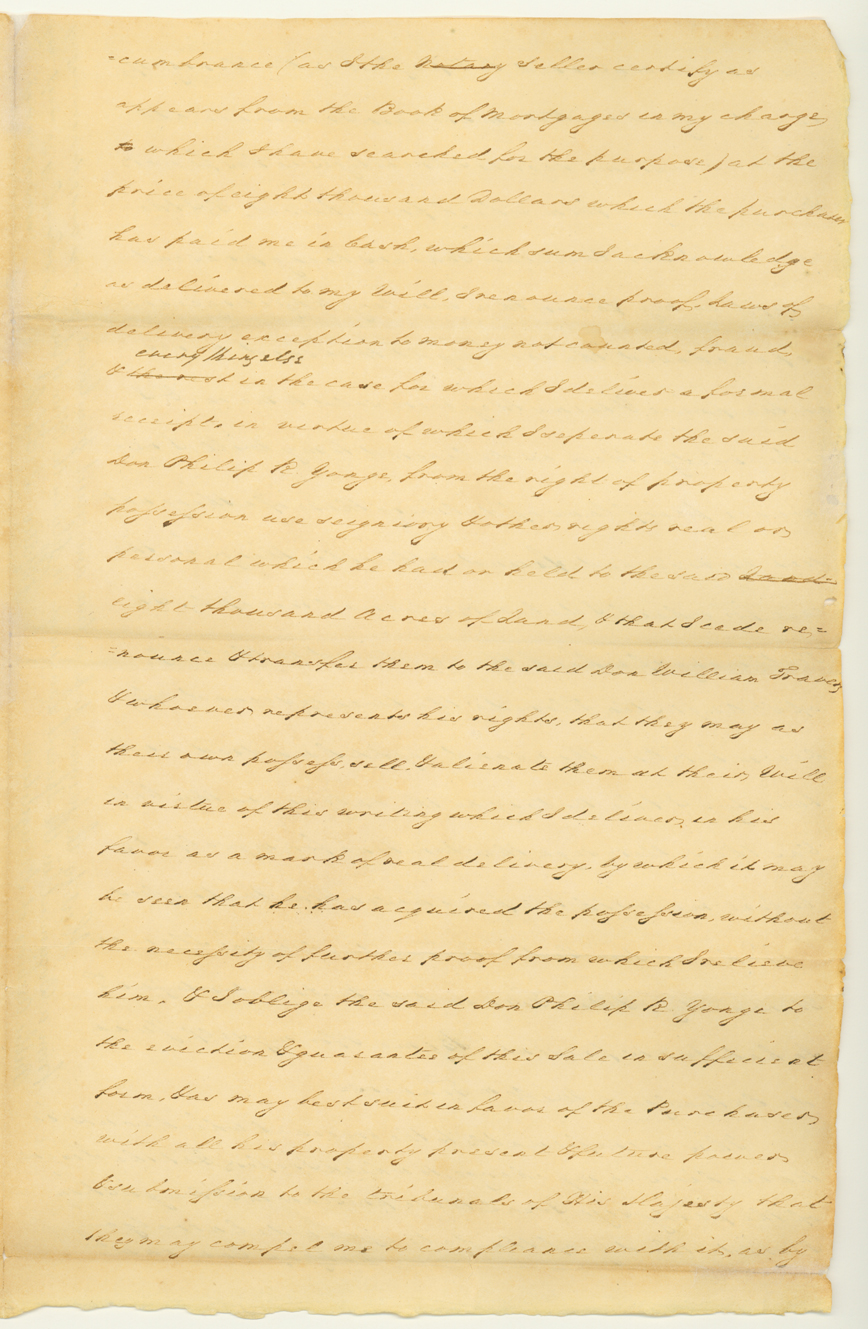 =cumbrance (as I the Notary Seller certify as
appears from the Book of Mortgages in my charge,
to which I have searched for the purpose) at the
price of eight thousand Dollars which the purchaser
has paid me in Cash, which sum I acknowledge
as delivered to my Will, I renounce proof, Laws of
delivery exception to money not counted, fraud,
every thing else
& the rest in the case for which I deliver a formal
receipt, in virtue of which I seperate the said
Don Philip R Yonge, from the right of property
possession use seigniory & other rights real or
personal which he had or held to the said Land
eight thousand Acres of Land, & that I cede re=
=nounce & transfer them to the said Don William Travers
& whoever represents his rights, that they may as
their own possess, sell, & alienate them at their Will
in virtue of this writing which I deliver in his
favor as a mark of real delivery, by which it may
be seen that he has acquired the possession, without
the necessity of further proof from which I relieve
him, & I oblige the said Don Philip R Yonge to
the eviction & guarantee of this Sale in sufficient
form, & as may best suit in favor of the Purchaser,
with all his property present & future power
& submission to the tribunals of His Majesty that
they may compel me to compliance with it, as by